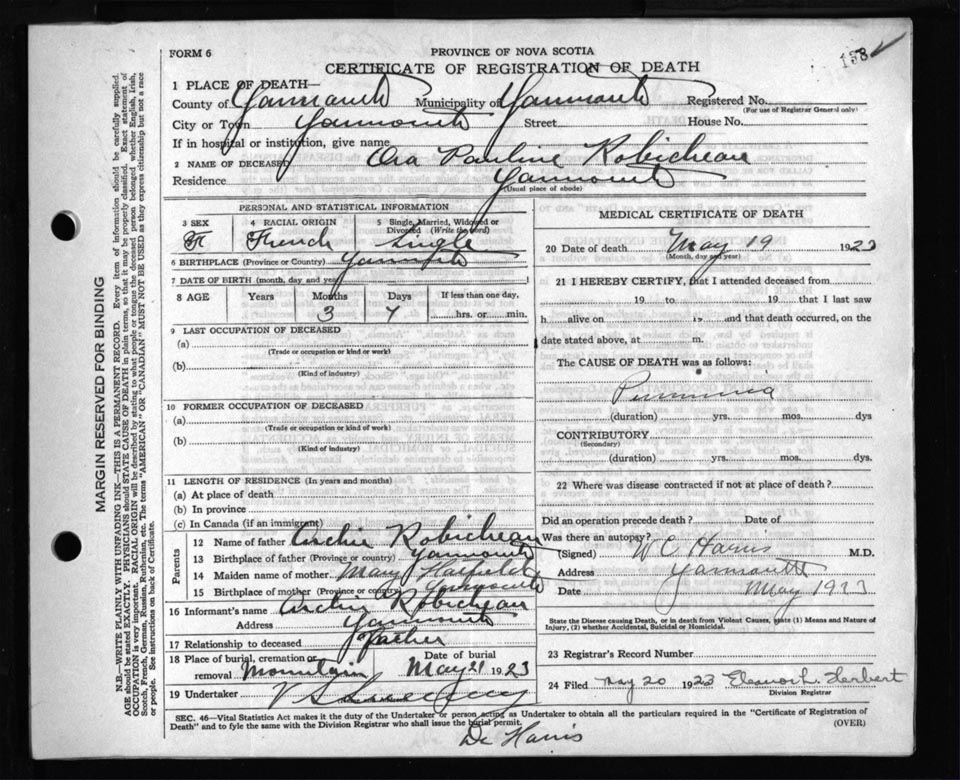 FORM 6
PROVINCE OF NOVA SCOTIA
138
CERTIFICATE OF REGISTRATION OF DEATH
1 PLACE OF DEATH—
County of Yarmouth Municipality of Yarmouth Registered No.
(For use of Registrar General only)
City or Town Yarmouth Street House No.
If in hospital or institution, give name
2 NAME OF DECEASED Ora Pauline Robicheau
Residence Yarmouth
(Usual place of abode)
PERSONAL AND STATISTICAL INFORMATION
3 SEX 4 RACIAL ORIGIN 5 Single, Married, Widowed or Divorced (Write the word)
F French Single
6 BIRTHPLACE (Province or Country) Yarmouth
7 DATE OF BIRTH (month, day and year)
8 AGE Years Months Days If less than one day,
3 7 hrs. or min.
9 LAST OCCUPATION OF DECEASED
(a)
(Trade or occupation or kind or work)
(b)
(Kind of industry)
10 FORMER OCCUPATION OF DECEASED
(a)
(Trade or occupation or kind of work)
(b)
(Kind of industry)
11 LENGTH OF RESIDENCE (In years and months)
(a) At place of death
(b) In province
(c) In Canada (if an immigrant)
Parents
12 Name of father Archie Robicheau
13 Birthplace of father (Province or country) Yarmouth
14 Maiden name of mother Mary Hatfield
15 Birthplace of mother (Province or country) Yarmouth
16 Informant's name Archie Robicheau
Address Yarmouth
17 Relationship to deceased Father
18 Place of burial, cremation or removal Mountain Date of burial May 21 1923
19 Undertaker V S Sweeny
MEDICAL CERTIFICATE OF DEATH
20 Date of death May 19 1923
(Month, day and year)
21 I HEREBY CERTIFY, that I attended deceased from
19 to 19 that I last saw
h alive on 19 and that death occurred, on the
date stated above, at m.
The CAUSE OF DEATH was as follows:
(duration) yrs. mos. dys
CONTRIBUTORY
(Secondary)
(duration) yrs. mos. dys.
22 Where was disease contracted if not at place of death?
Did an operation precede death? Date of
Was there an autopsy?
(Signed) W C Harris M.D.
Address Yarmouth
Date May 1923
State the Disease causing Death, or in death from Violent Causes, state (1) Means and Nature of
Injury, (2) whether Accidental, Suicidal or Homicidal.
23 Registrar's Record Number
24 Filed May 20 1923 Eleanor L. Herbert
Division Registrar
SEC. 46—Vital Statistics Act makes it the duty of the Undertaker or person acting as Undertaker to obtain all the particulars required in the "Certificate of Registration of
Death" and to fyle the same with the Division Registrar who shall issue the burial permit. (OVER)
Dr Harris
MARGIN RESERVED FOR BINDING
N.B.—WRITE PLAINLY WITH UNFADING INK—THIS IS A PERMANENT RECORD. Every item of information should be carefully supplied.
AGE should be stated EXACTLY. PHYSICIANS should STATE CAUSE OF DEATH in plain terms, so that it may be properly classified. Exact statement of
OCCUPATION is very important. RACIAL ORIGIN will be described by stating to what people or tongue the deceased person belonged whether English, Irish,
Scotch, French, German, Russian, Ruthenian, etc. The terms "AMERICAN" OR "CANADIAN" MUST NOT BE USED as they express citizenship but not a race
or people. See instructions on back of Certificate.